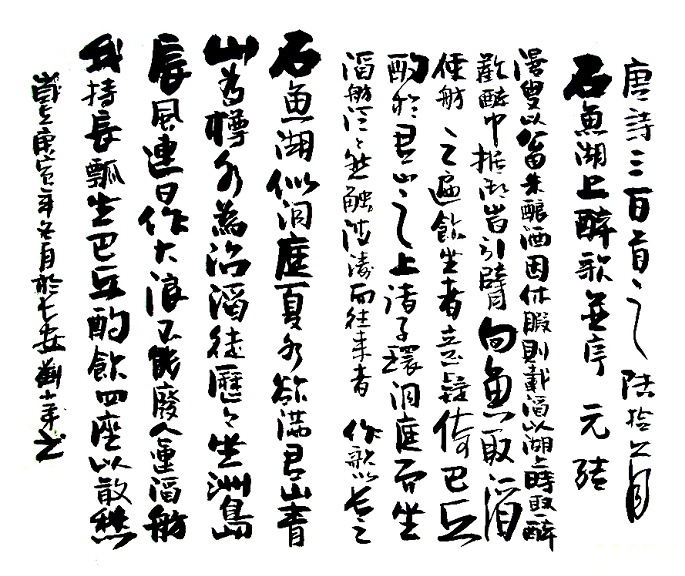 唐詩三百首之 陆拾
石魚湖上醉歌並序 元结
漫叟以公田米釀酒因休暇則載酒以湖上時取一醉
歡醉中据湖岸引臂向魚取酒
使舫之遍飲坐者意疑倚巴丘
酌於君山之上诸子環洞庭而坐
酒舫泛々然触波濤而往来者 作歌以长之
石魚湖似洞庭夏水欲满君山青
山為樽水為沼酒徒歷々坐洲島
長風連日作大浪不能廢人運酒舫
我持長瓢坐巴丘酌飲四座以散愁
庚寅年冬月於长安